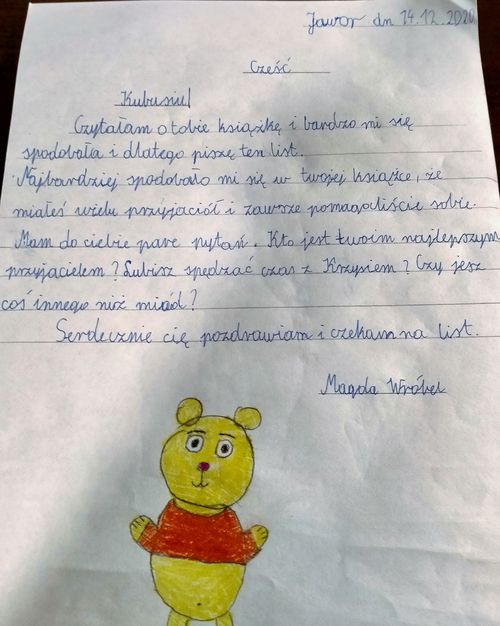 Jawor dn 14.12.2020
Cześć
Kubusiu!
Czytałam o tobie książkę i bardzo mi się
spodobała i dlatego piszę ten list.
Najbardziej spodobało mi się w twojej książce, że
miałeś wielu przyjaciół i zawsze pomagaliście sobie.
Mam do ciebie parę pytań. Kto jest twoim najlepszym
przyjacielem? Lubisz spędzać czas z Krzysiem? Czy jesz
coś innego niż miód?
Serdecznie cię pozdrawiam i czekam na list.
Magda Wróbel